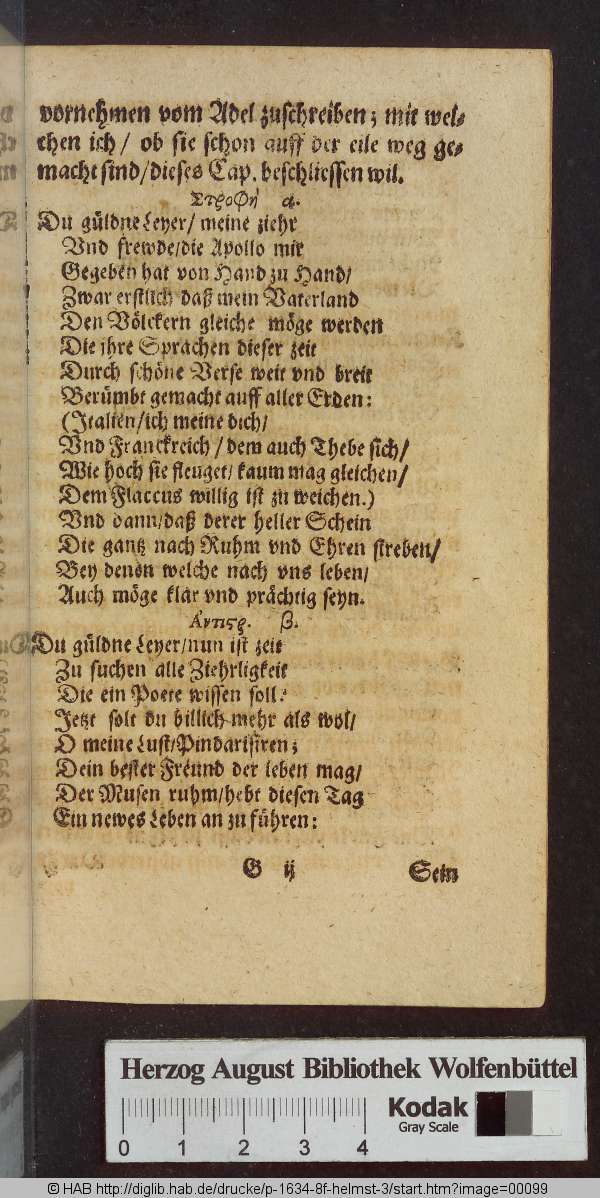 vornehmen vom Adel zuschreiben; mit wel-
chen ich/ ob sie schon auff der eile weg ge-
macht sind/dieses Cap. beschliessen wil.
Στροφὴ α.
Du güldne Leyer/ meine ziehr
Vnd frewde/die Apollo mir
Gegeben hat von Hand zu Hand/
Zwar erstlich daß mein Vaterland
Den Völckern gleiche möge werden
Die jhre Sprachen dieser zeit
Durch schöne Verse weit vnd breit
Berümbt gemacht auff aller Erden:
(Italien/ich meine dich/
Vnd Franckreich/dem auch Thebe sich/
Wie hoch sie fleuget/ kaum mag gleichen/
Dem Flaccus willig ist zu weichen.)
Vnd dann/daß derer heller Schein
Die gantz nach Ruhm vnd Ehren streben/
Bey denen welche nach vns leben/
Auch möge klar vnd prächtig seyn.
Ἀντιςρ. β.
Du güldne Leyer/nun ist zeit
Zu suchen alle Ziehrligkeit
Die ein Poete wissen soll.
Jetzt solt du billich mehr als wol/
O meine Lust/Pindarisiren;
Dein bester Freund der leben mag/
Der Musen ruhm/hebt diesen Tag
Ein newes Leben an zu führen:
G ij Sein
Herzog August Bibliothek Wolfenbüttel
Kodak
Gray Scale
0 1 2 3 4
© HAB http://diglib.hab.de/drucke/p-1634-8f-helmst-3/start.htm?image=00099